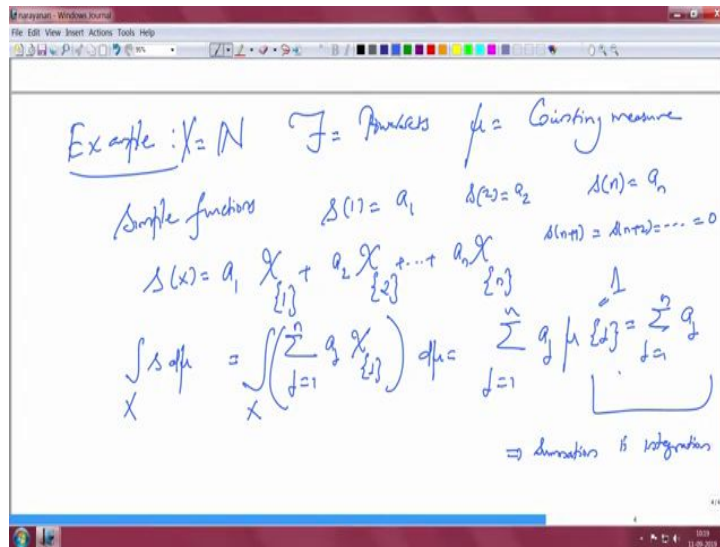 narayanan - Windows Journal
File Edit View Insert Actions Tools Help
Example : X = ℕ ℱ = Powersets μ = Counting measure
Simple functions s(1) = a₁ s(2) = a₂ s(n) = aₙ
s(n+1) = s(n+2) = ---- = 0
s(x) = a₁ χ_{1} + a₂ χ_{2} + ... + aₙ χ_{n}
∫_X s dμ = ∫_X (∑_{j=1}^{n} a_j χ_{j}) dμ = ∑_{j=1}^{n} a_j μ{j} = ∑_{j=1}^{n} a_j
= 1
⇒ Summation is integration
10:19
11-09-2019